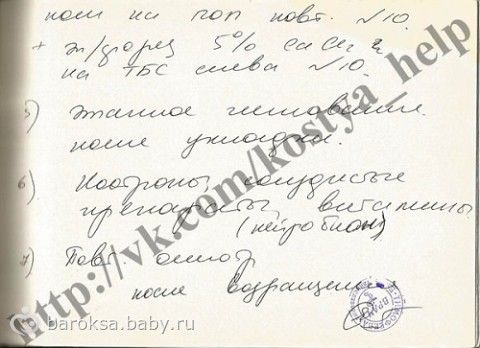 пояс на поп повт. №10.
+ эл/форез 5% CaCl₂
на ТБС слева №10.
5) Этапное гипсование
после укладки.
6) Ноотропы, сосудистые
препараты, витамины
(нейробион)
7) Повт. осмотр
после возвращения
http://vk.com/kostya_help
baroksa.baby.ru
ВРАЧ